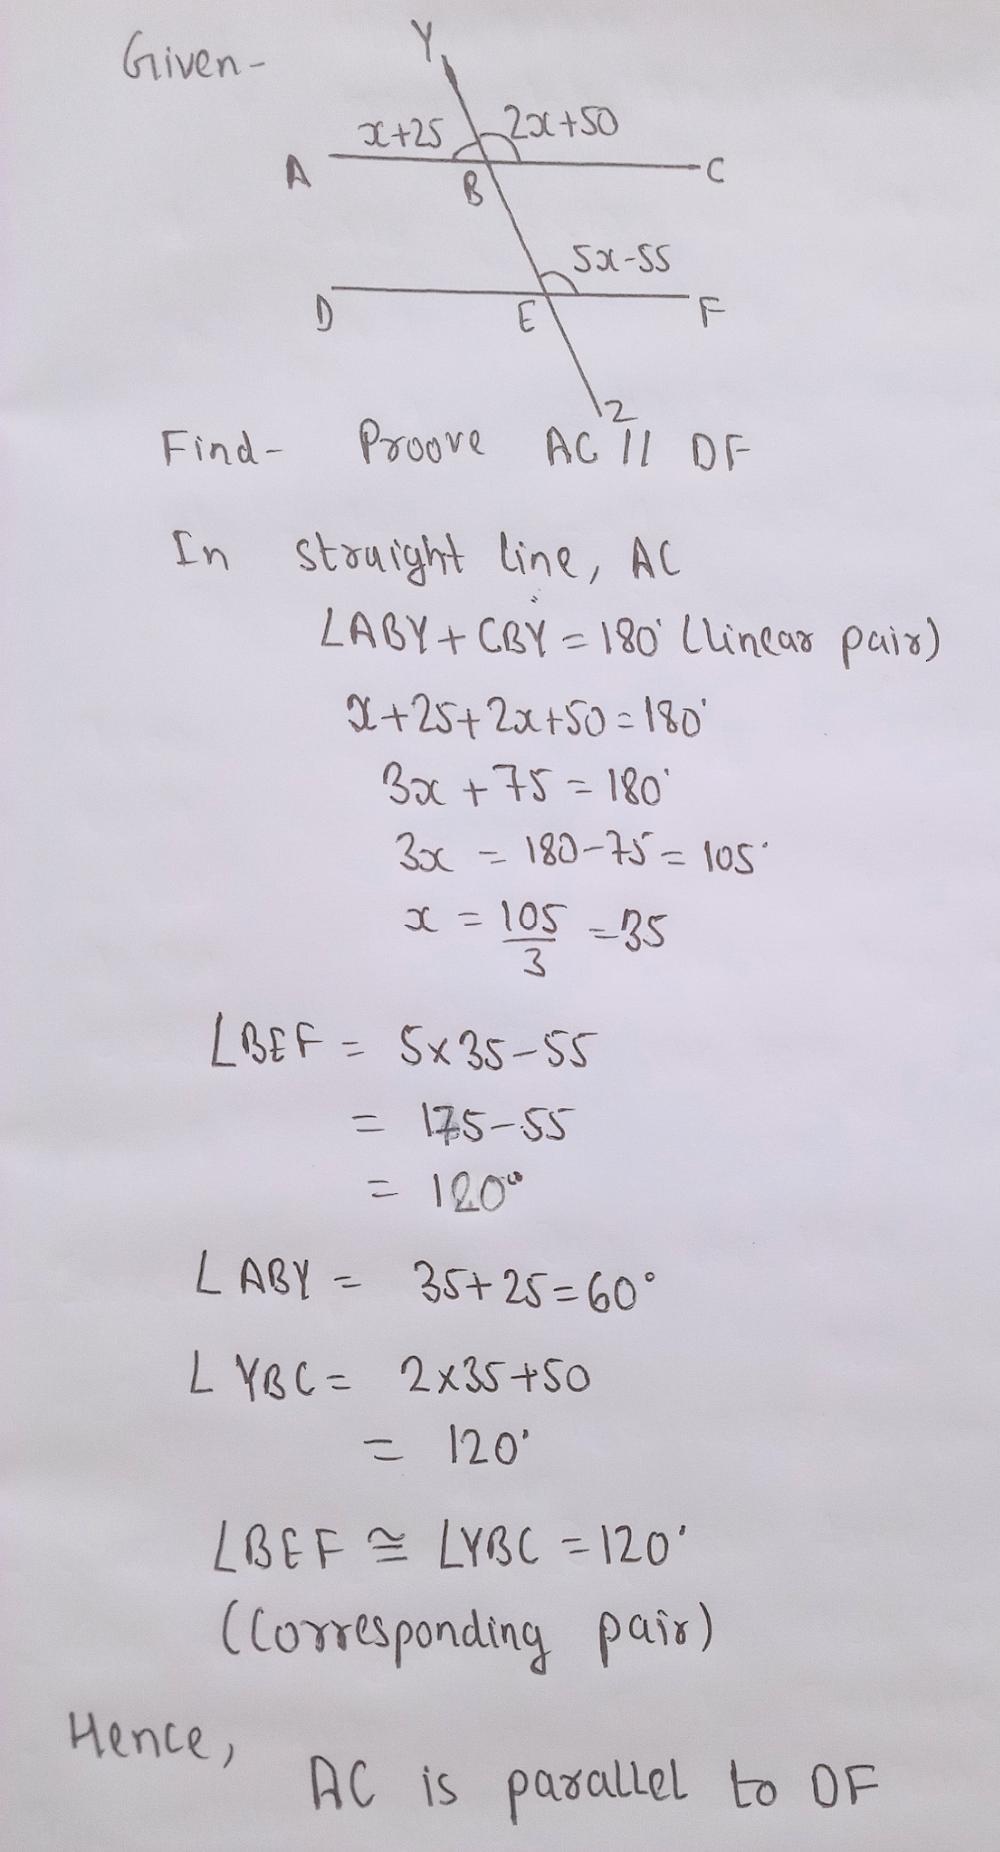 Given-
Y
x+25 2x+50
A B C
5x-55
D E F
Z
Find- Proove AC || DF
In straight line, AC
∠ABY + CBY = 180° (linear pair)
x+25+2x+50=180°
3x + 75 = 180°
3x = 180-75 = 105°
x = 105/3 = 35
∠BEF = 5×35-55
= 175-55
= 120°
∠ABY = 35+25=60°
∠YBC = 2×35+50
= 120°
∠BEF ≅ ∠YBC = 120°
(Corresponding pair)
Hence,
AC is parallel to DF